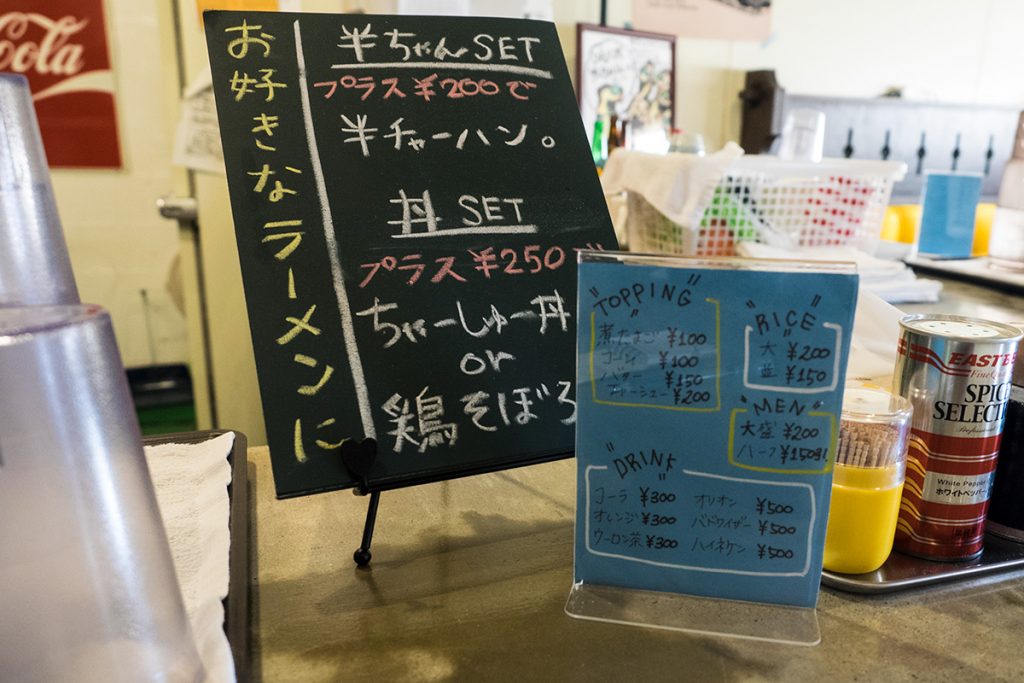 Cola
お好きなラーメンに
半ちゃんSET
プラス¥200で
半チャーハン。
丼 SET
プラス¥250で
ちゃーしゅー丼
or
鶏そぼろ
"TOPPING"
煮たまご ¥100
コーン ¥100
バター ¥150
チャーシュー ¥200
"RICE"
大 ¥200
並 ¥150
"MEN"
大盛 ¥200
ハーフ ¥150引
"DRINK"
コーラ ¥300 オリオン ¥500
オレンジ ¥300 バドワイザー ¥500
ウーロン茶 ¥300 ハイネケン ¥500
White Pepper
ホワイトペッパー